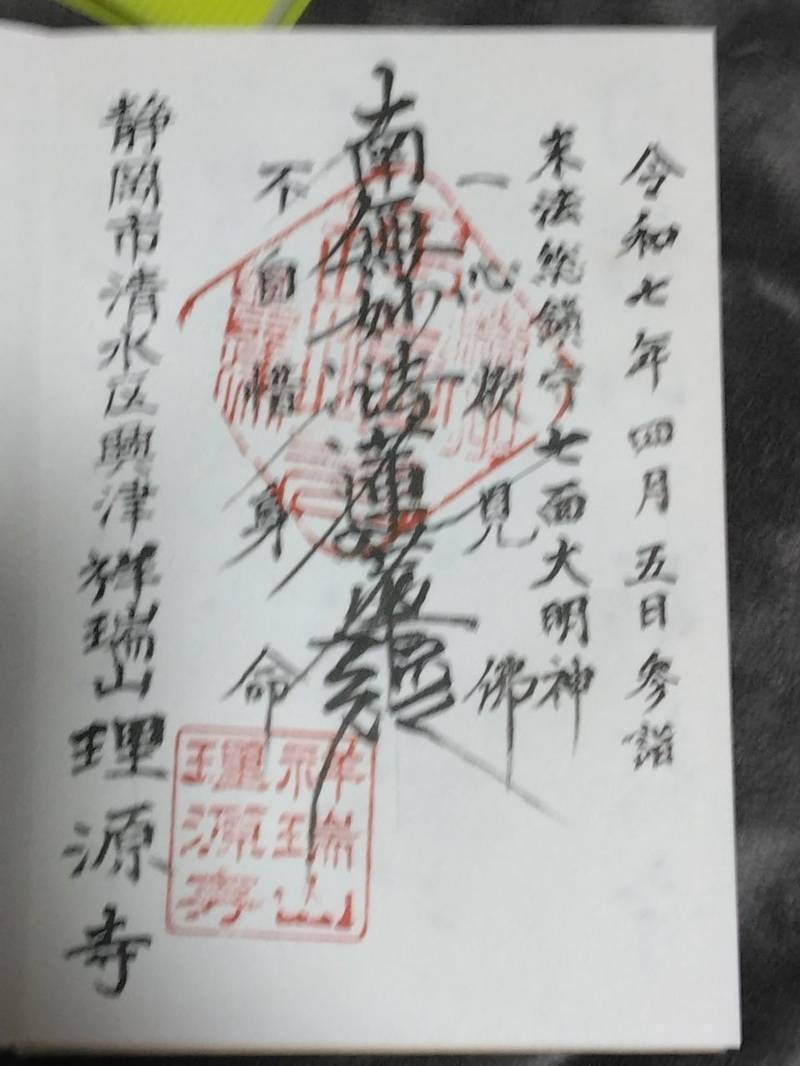 令和七年四月五日参詣
末法総鎮守七面大明神
一心欲見佛
南無妙法蓮華経
不自惜身命
静岡市清水区興津祥瑞山理源寺
祥瑞山
理源寺